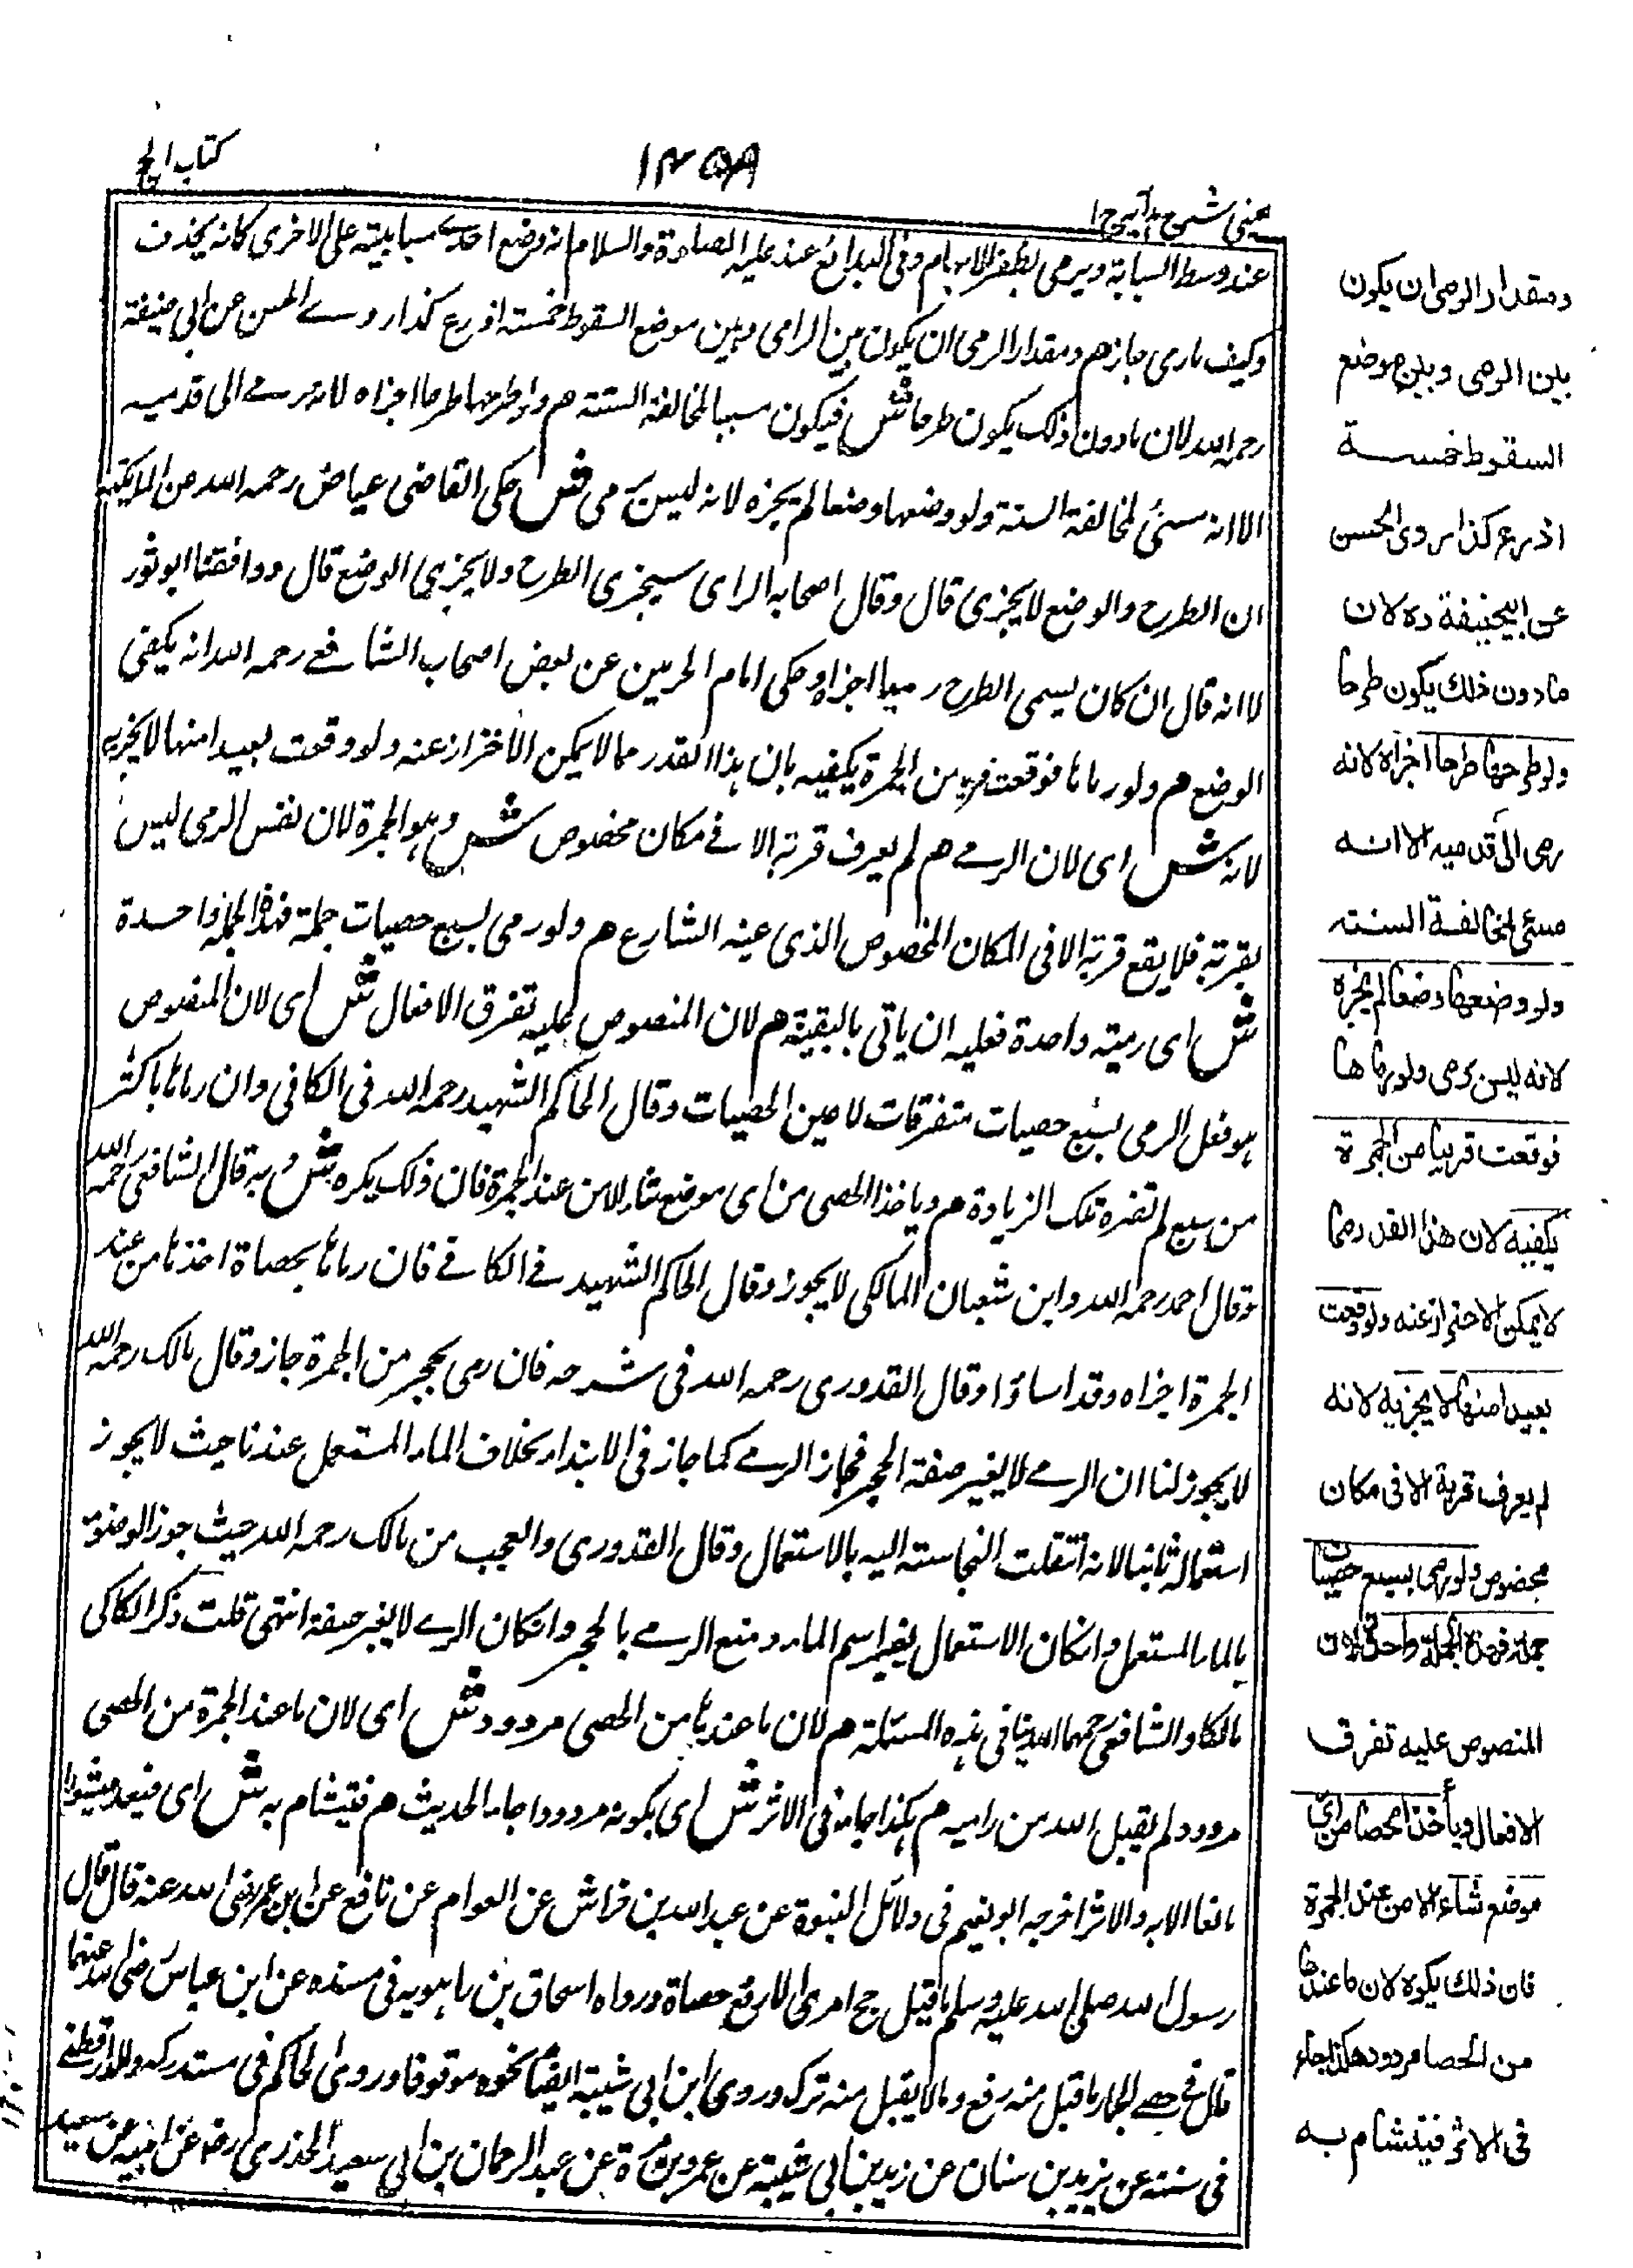 كتاب الحج
١٤٥٩
عيني شرح هداية ج ١
عند وسط السبابة ويرمي بظفر الابهام وفي البدائع عند عليه الصلوة والسلام انه وضع احدى سبابيته على الاخرى كانه يخذف
وكيف ما رمى جاز هم ومقدار الرمي ان يكون بين الرامي وبين موضع السقوط خمسة اذرع كذا روى الحسن عن ابي حنيفة
رحمه الله لان ما دون ذلك يكون طرحا ش فيكون سببا لمخالفة السنة هم ولو طرحها طرحا اجزاه لانه رمى الى قدميه
الا انه مسئ لمخالفة السنة ولو وضعها وضعا لم يجزه لانه ليس برمي ش حكى القاضي عياض رحمه الله عن المالكية
ان الطرح والوضع لا يجزي قال وقال اصحاب الراى سيجزى الطرح ولا يجزي الوضع قال ووافقنا ابو ثور
لا انه قال ان كان يسمى الطرح رميا اجزاه وحكى امام الحرمين عن بعض اصحاب الشافعي رحمه الله انه يكفي
الوضع هم ولو رماها فوقعت قريبا من الجمرة يكفيه بان هذا القدر مما لا يمكن الاحتراز عنه ولو وقعت بعيدا منها لا يجزيه
لانه ش اى لان الرمي هم لم يعرف قربة الا في مكان مخصوص ش وهو الجمرة لان نفس الرمي ليس
بقربة فلا يقع قربة الا في المكان المخصوص الذى عينه الشارع هم ولو رمى بسبع حصيات جملة فهذه الجملة واحدة
ش اى رمية واحدة فعليه ان ياتي بالبقية هم لان المنصوص عليه تفرق الافعال ش اى لان المنصوص
هو فعل الرمي بسبع حصيات متفرقات لا عين الحصيات وقال الحاكم الشهيد رحمه الله في الكافي وان رماها باكثر
من سبع لم تضره تلك الزيادة هم ويأخذ الحصى من اى موضع شاء الا من عند الجمرة فان ذلك يكره ش وبه قال الشافعي رحمه الله
وقال احمد رحمه الله وابن شعبان المالكي لا يجوز وقال الحاكم الشهيد في الكافي فان رماها بحصاة اخذها من عند
الجمرة اجزاه وقد اساؤا وقال القدوري رحمه الله في شرحه فان رمى بحجر من الجمرة جاز وقال مالك رحمه الله
لا يجوز لنا ان الرمي لا يغير صفة الحجر فجاز الرمي كما جاز في الابتداء بخلاف الماء المستعمل عندنا حيث لا يجوز
استعماله ثانيا لانه انتقلت النجاسة اليه بالاستعمال وقال القدوري والعجب من مالك رحمه الله حيث جوز الوضوء
بالماء المستعمل وان كان الاستعمال يغير اسم الماء ومنع الرمي بالحجر وان كان الرمي لا يغير صفة انتهى قلت ذكر الكاكي
مالكا والشافعي رحمهما الله في هذه المسئلة هم لان ما عندها من الحصى مردود ش اى لان ما عند الجمرة من الحصى
مردود لم يقبل الله من راميه هم هكذا جاء في الاثر ش اى بكونه مردودا جاء الحديث هم فيتشام به ش اى فيعد مشئوما
مانعا الابه والاثر اخرجه ابو نعيم في دلائل النبوة عن عبد الله بن خراش عن العوام عن نافع عن ابن عمر رضى الله عنه قال قال
رسول الله صلى الله عليه وسلم ما قبل حج امرئ الا رفع حصاة ورواه اسحاق بن راهويه في مسنده عن ابن عباس رضى الله عنهما
قال في حصى الجمار ما قبل منه رفع وما لا يقبل منه ترك وروى ابن ابي شيبة ايضا نحوه موقوفا وروى الحاكم في مستدركه والدارقطني
في سننه عن يزيد بن سنان عن زيد بن ابي شيبة عن عمرو بن مرة عن عبد الرحمان بن ابي سعيد الخدري رضه عن ابيه عن سعيد
ومقدار الرمى ان يكون
بين الرمى وبين موضع
السقوط خمسة
اذرع كذا روى الحسن
عن ابيحنيفة ره لان
ما دون ذلك يكون طرحا
ولو طرحها طرحا اجزاه لانه
رمى الى قدميه الا انه
مسئ لمخالفة السنة
ولو وضعها وضعا لم يجزه
لانه ليس برمى ولو رماها
فوقعت قريبا من الجمرة
يكفيه لان هذا القدر مما
لا يمكن الاحتراز عنه ولو وقعت
بعيدا منها لا يجزيه لانه
لم يعرف قربة الا فى مكان
مخصوص ولو رمى بسبع حصيات
جملة فهذه الجملة واحدة لان
المنصوص عليه تفرق
الافعال ويأخذ الحصا من اى
موضع شاء الا من عند الجمرة
فان ذلك يكره لان ما عندها
من الحصا مردود هكذا جاء
فى الاثر فيتشام به